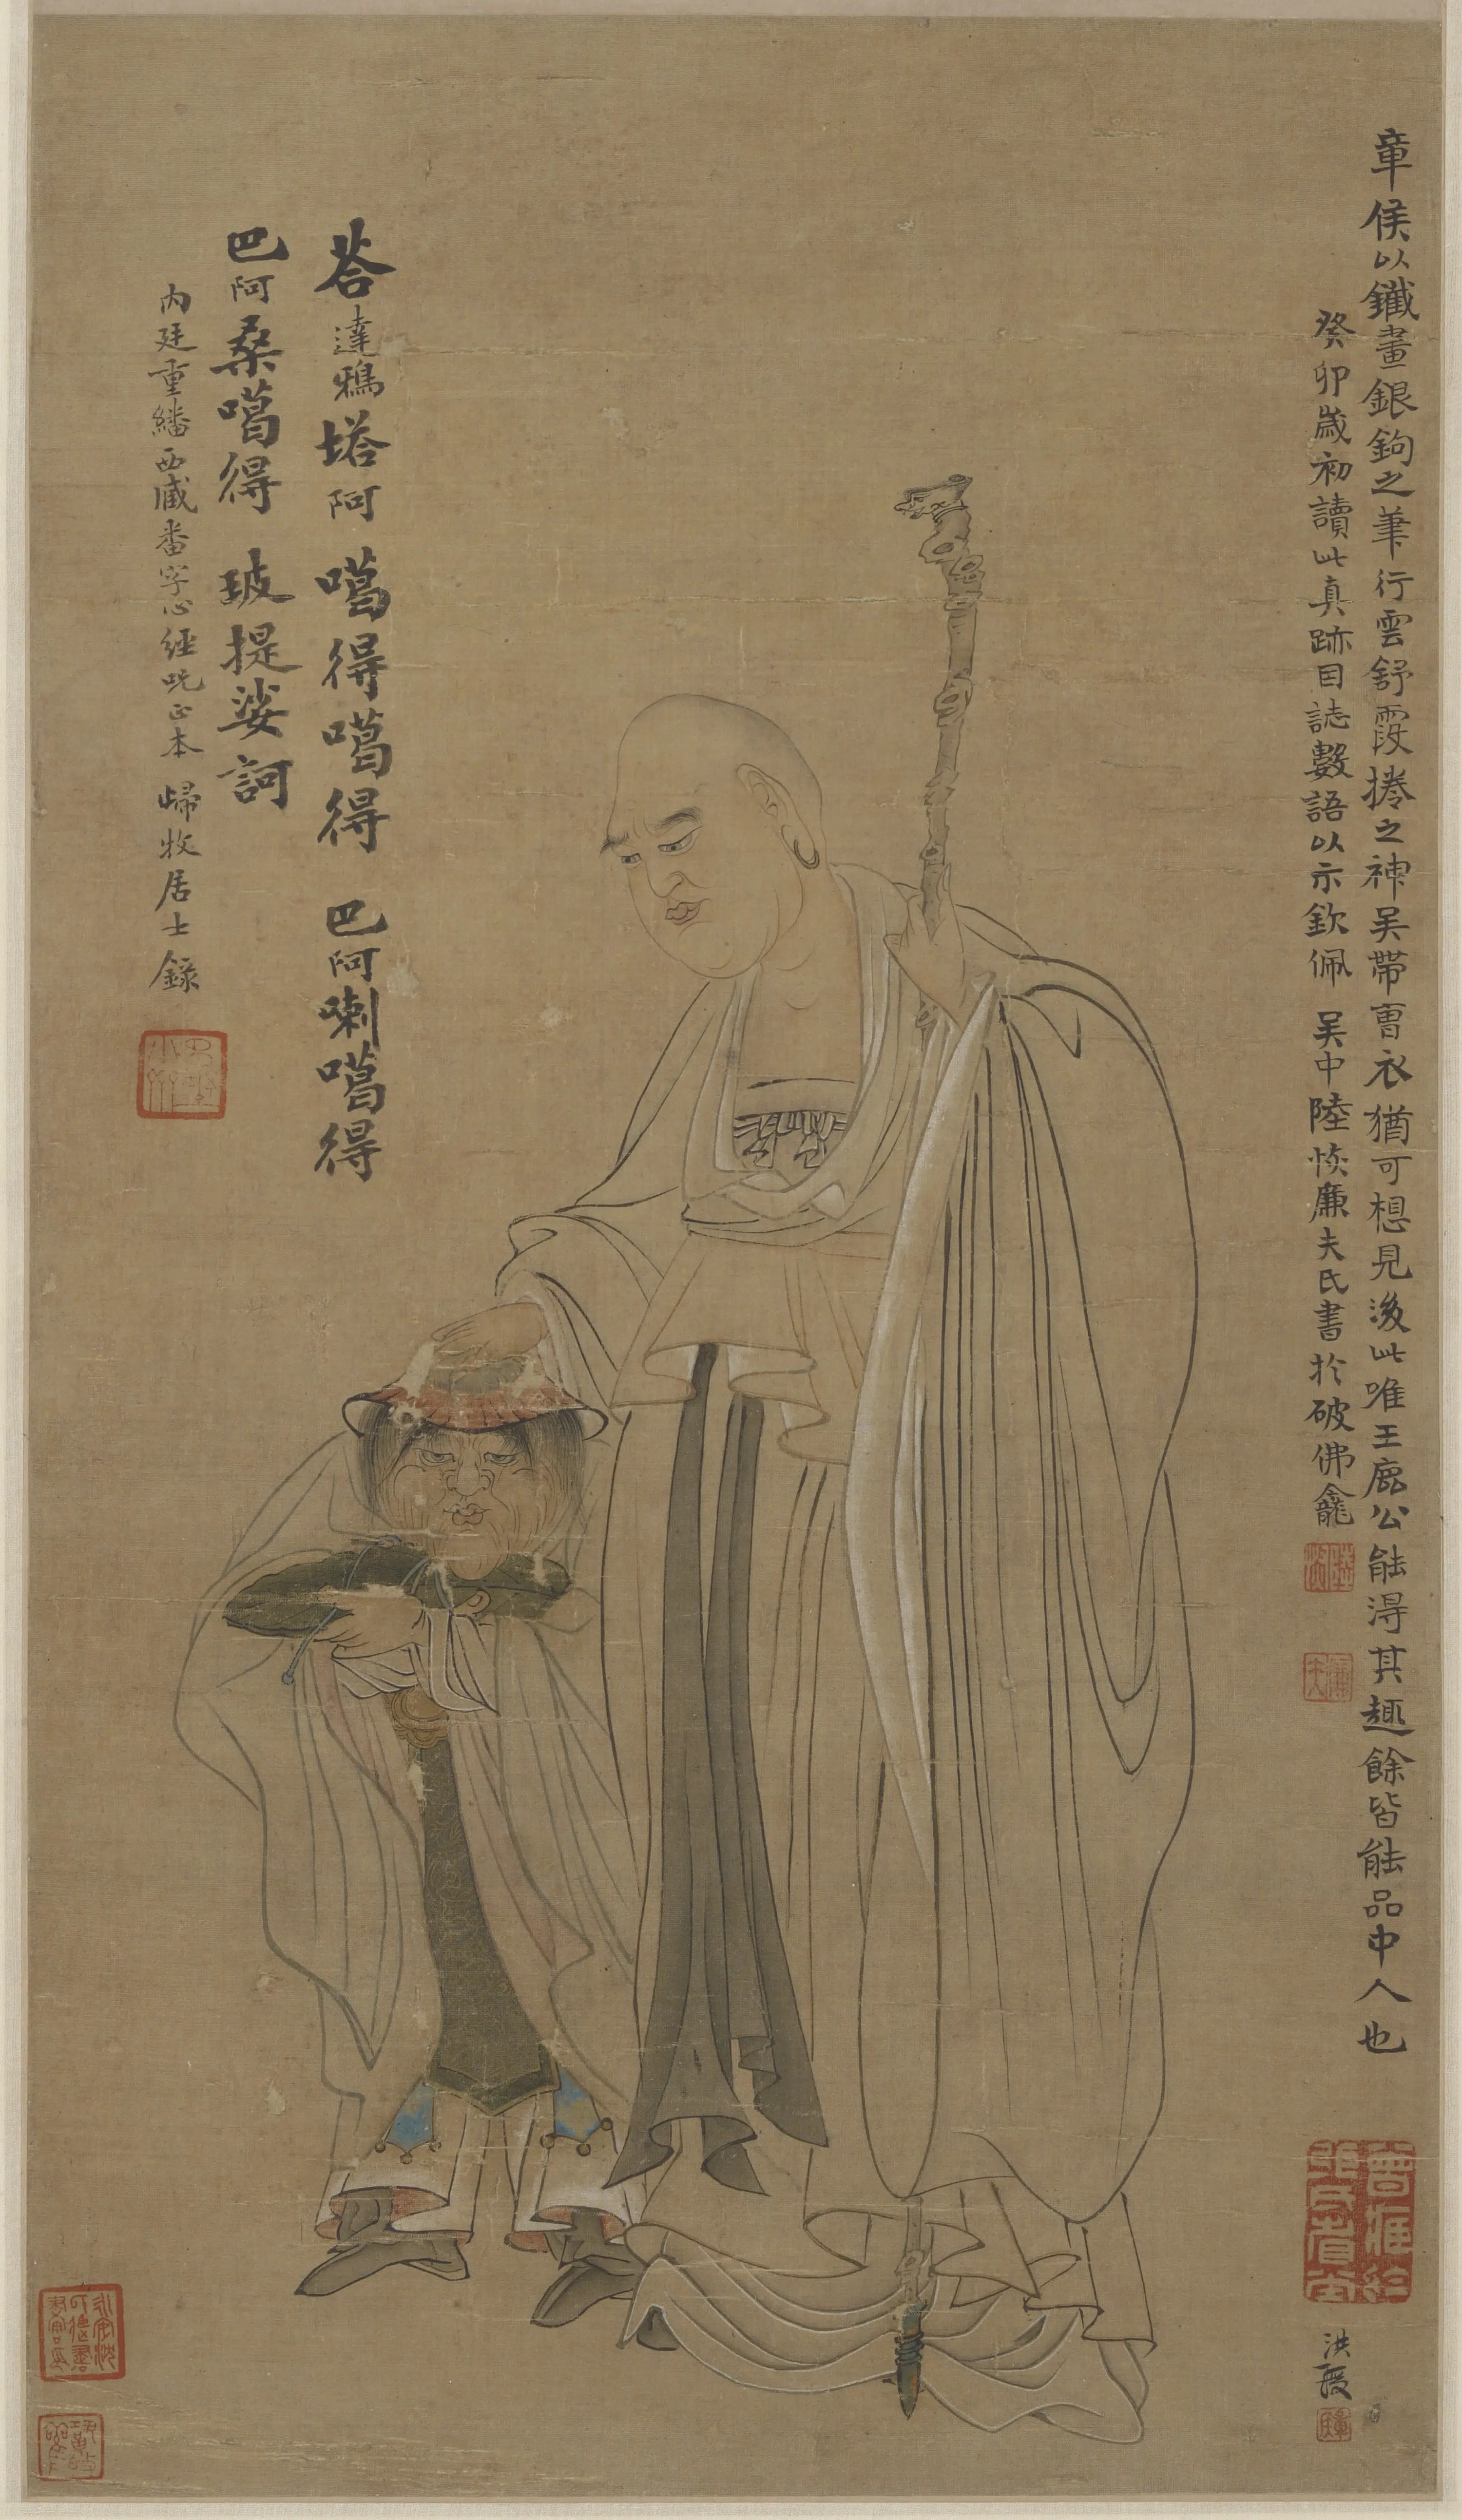 章侯以鐵畫銀鉤之筆行雲舒霞捲之神吳帶曹衣猶可想見後此唯王廌公能得其趣餘皆能品中人也
癸卯歲初讀此真跡目誌數語以示欽佩 吳中陸恢廉夫氏書於破佛龕
荅達鴉塔阿 噶得噶得 巴阿喇噶得
巴阿桑噶得 玻提娑訶
內廷重繙西藏番字心經咒正本 歸牧居士錄
洪綬
陸恢
廉夫